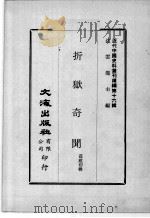 近代中國史料叢刊續編第十六輯
沈雲龍主編
折獄奇聞
葛建初輯
文海出版社有限公司印行